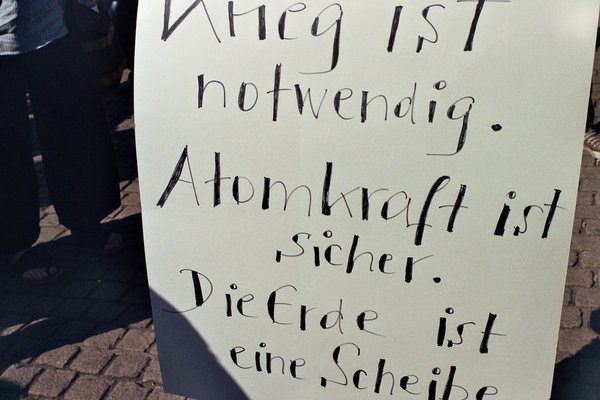 Krieg ist
notwendig.
Atomkraft ist
sicher.
Die Erde ist
eine Scheibe